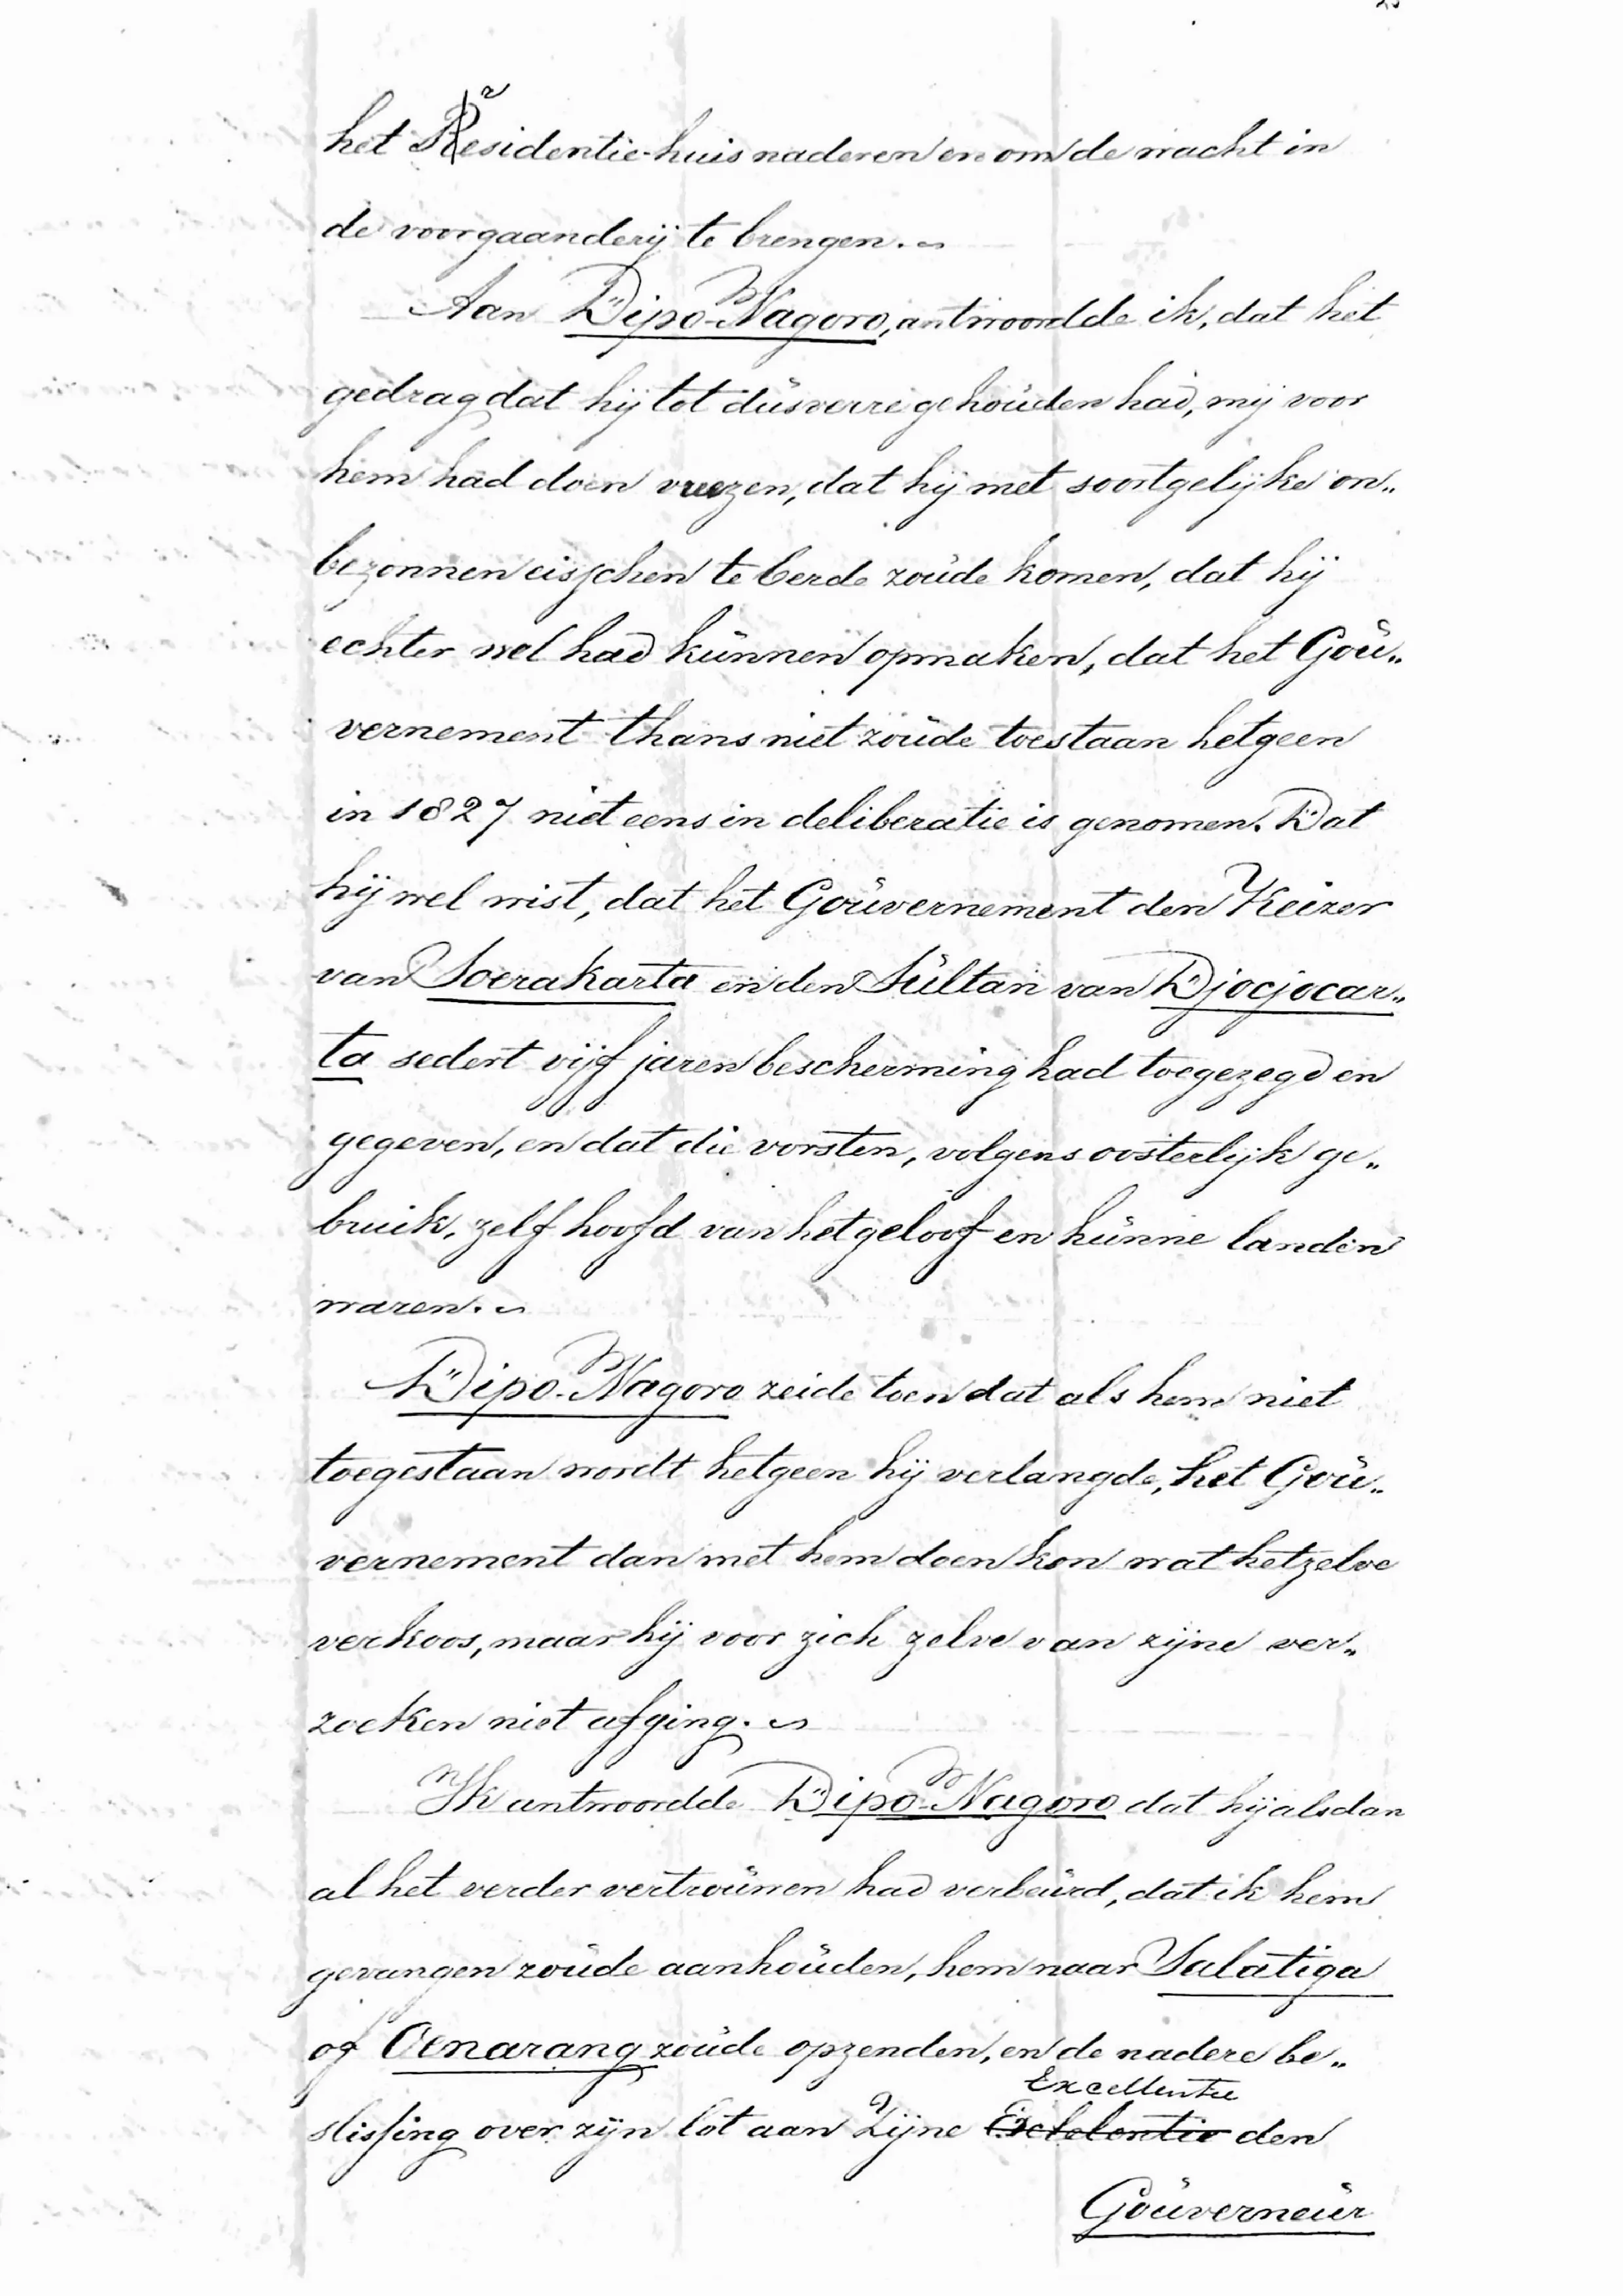 het Residentie-huis naderen en om de wacht in
de voorgaanderij te brengen.
Aan Dipo-Nagoro, antwoordde ik, dat het
gedrag dat hij tot dusverre gehouden had, mij voor
hem had doen vreezen, dat hij met soortgelijke on„
bezonnen eisschen te berde zoude komen, dat hij
echter wel had kunnen opmaken, dat het Gou„
vernement thans niet zoude toestaan hetgeen
in 1827 niet eens in deliberatie is genomen. Dat
hij wel wist, dat het Gouvernement den Keizer
van Soerakarta en den Sultan van Djocjocar„
ta sedert vijf jaren bescherming had toegezegd en
gegeven, en dat die vorsten, volgens oosterlijk ge„
bruik, zelf hoofd van het geloof en hunne landen
waren.
Dipo-Nagoro zeide toen dat als hem niet
toegestaan wordt hetgeen hij verlangde, het Gou„
vernement dan met hem doen kon wat hetzelve
verkoos, maar hij voor zich zelve van zijne ver„
zoeken niet afging.
Ik antwoordde Dipo-Nagoro dat hij alsdan
al het verder vertrouwen had verbeurd, dat ik hem
gevangen zoude aanhouden, hem naar Salatiga
of Oenarang zoude opzenden, en de nadere be„
Excellentie
slissing over zijn lot aan Zijne Exelelentie den
Gouverneur